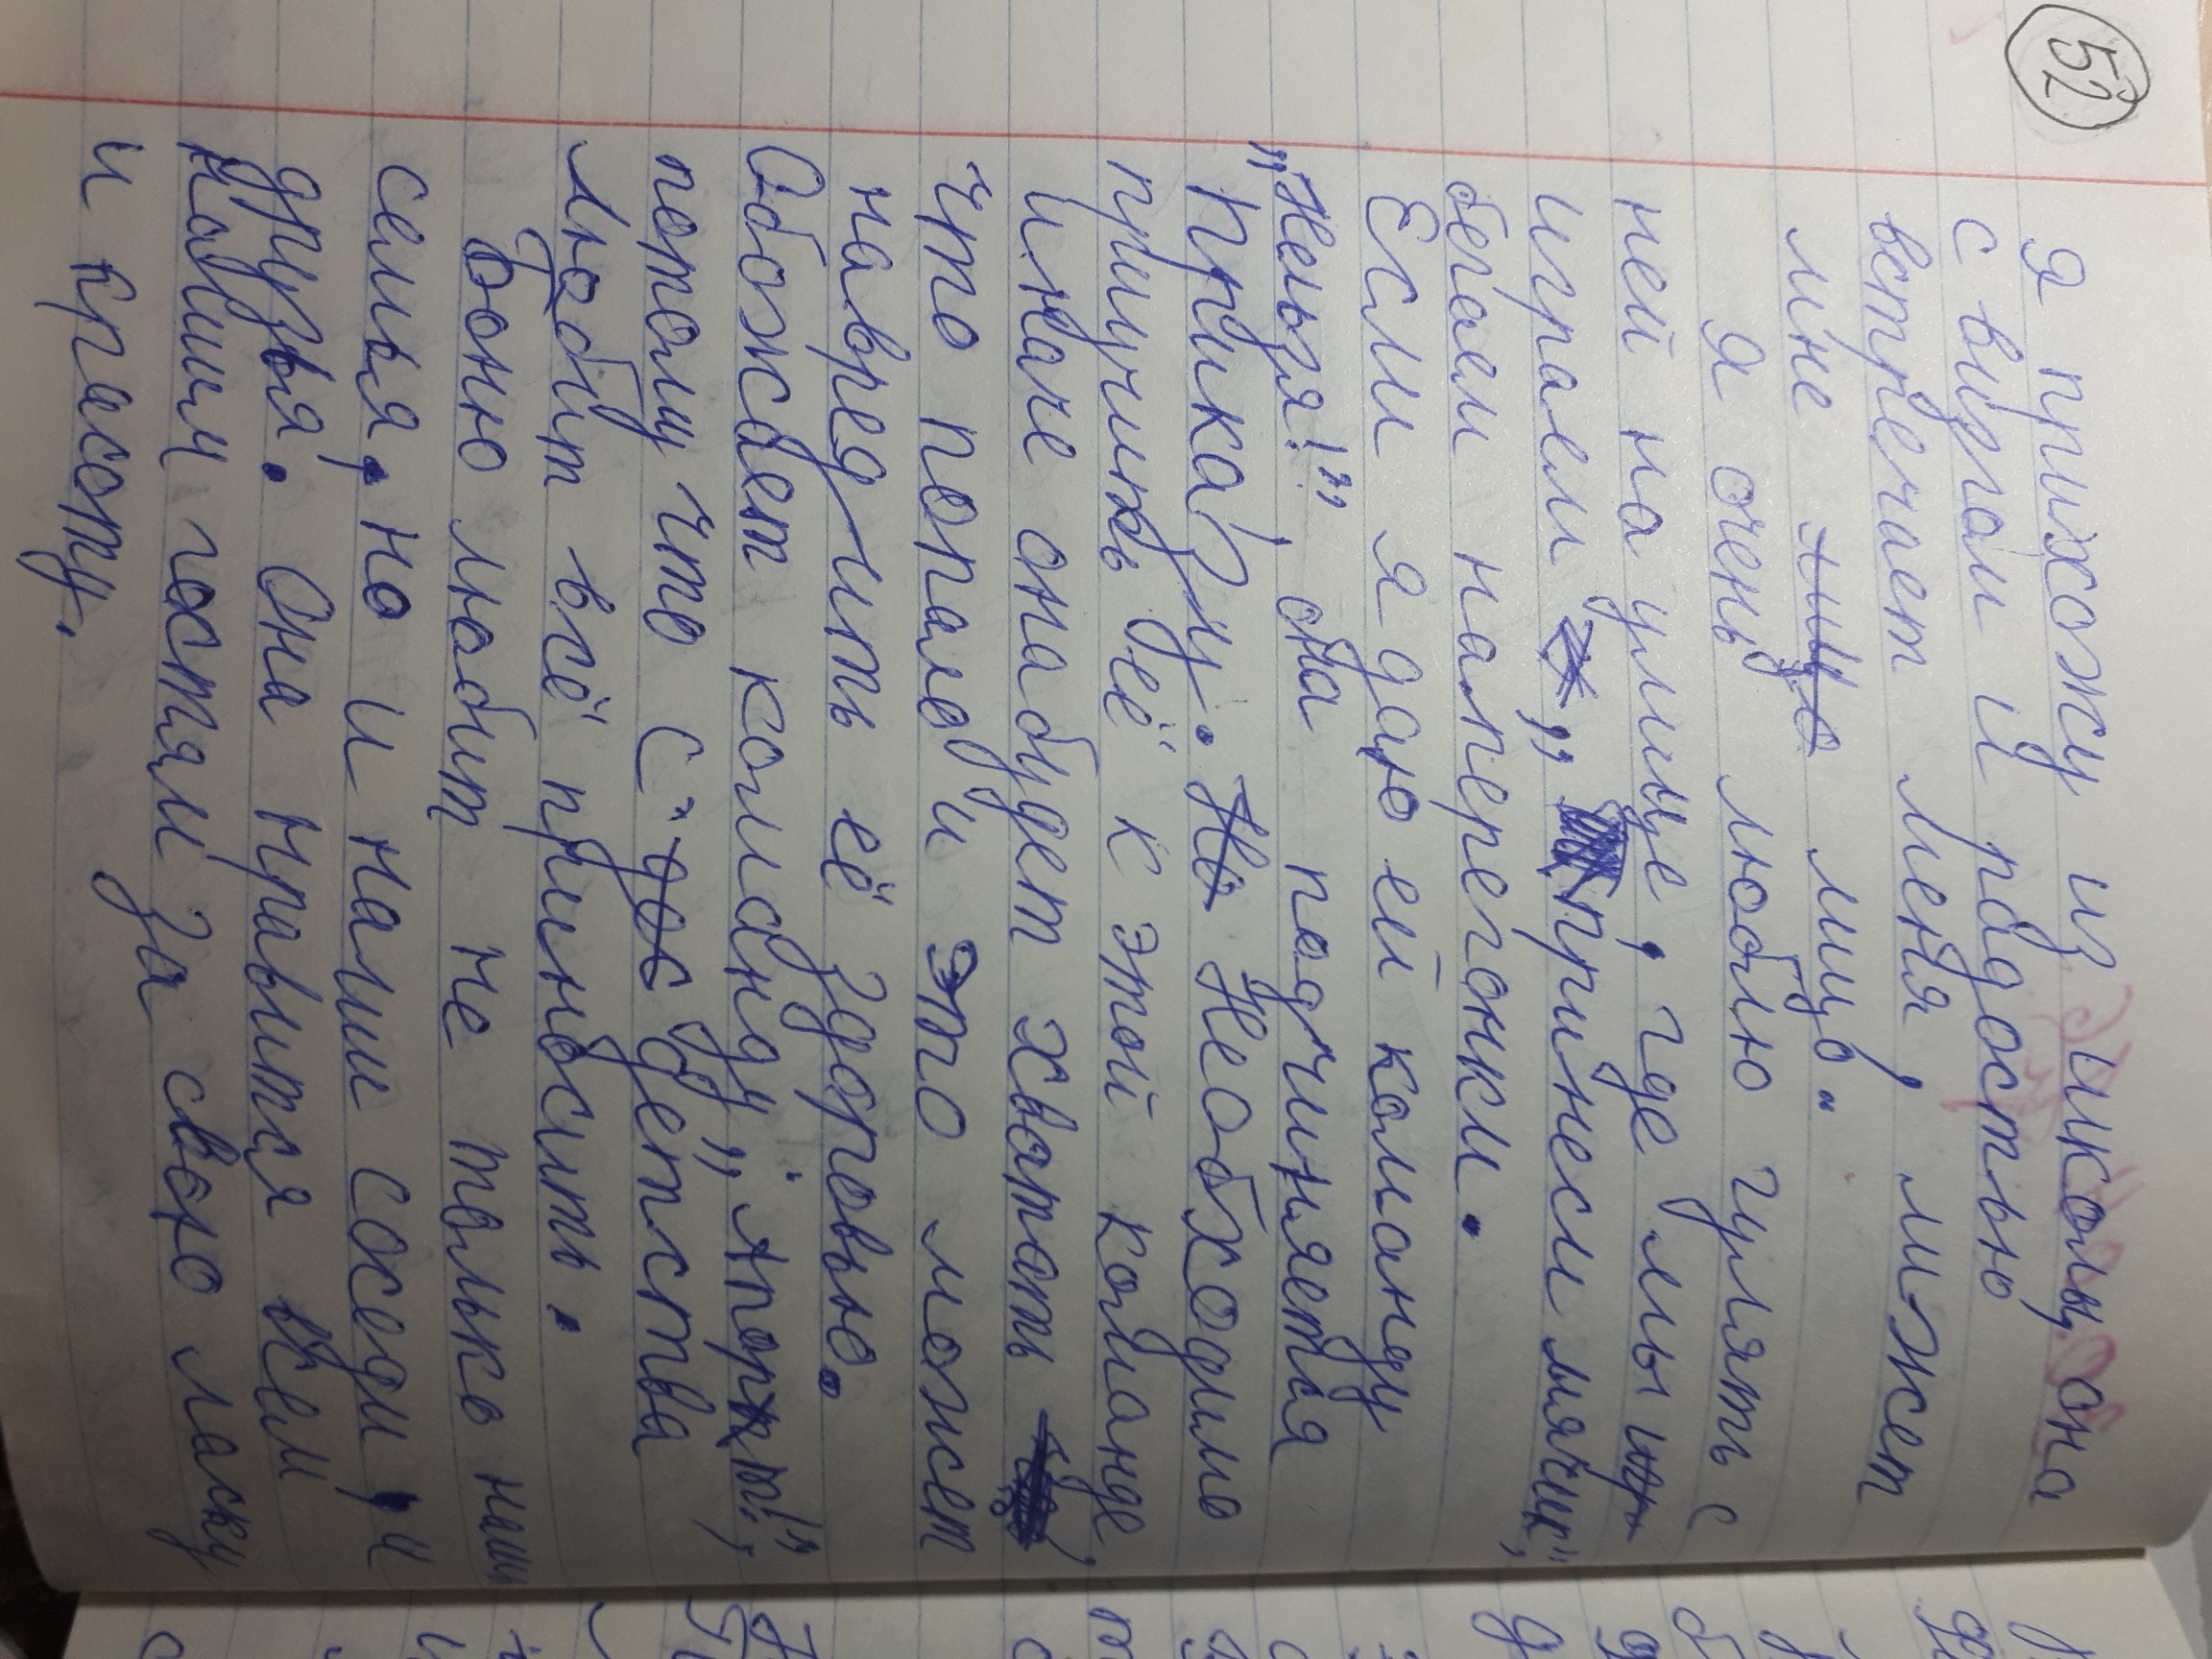 52
я прихожу из школы, она
с визгом и радостью
встречает меня, лижет
мне лицо лицо.
Я очень люблю гулять с
ней на улице, где мы игр
играем „принеси мячик“,
бегаем наперегонки.
Если я даю ей команду
„Нельзя!“, она подчиняется
приказу. Но Необходимо
приучить её к этой команде,
иначе она будет хватать
что попало и это может
навредить её здоровью.
Обожает команду „Апорт!“,
потому что с дос детства
любит всё приносить.
Боню любит не только наша
семья, но и наши соседи, и
друзья. Она нравится всем
нашим гостям за свою ласку
и красоту.